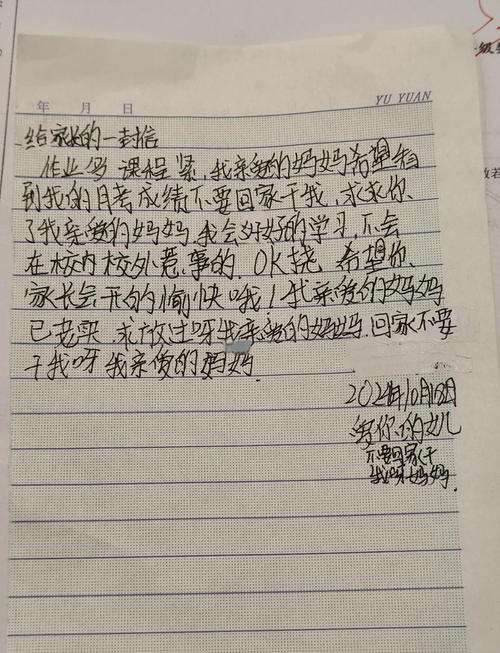 年 月 日
YU YUAN
给家长的一封信
作业多 课程紧,我亲爱的妈妈希望知
到我的月考成绩不要回家干我,求求你
了我亲爱的妈妈,我会好好的学习,不会
在校内校外惹事的,OK挠 希望你
家长会开的愉快哦!我亲爱的妈妈
已老实 求放过呀我亲爱的妈妈,回家不要
干我呀我亲爱的妈妈.
10月18日
你的女儿
不要回家干
我呀妈妈.